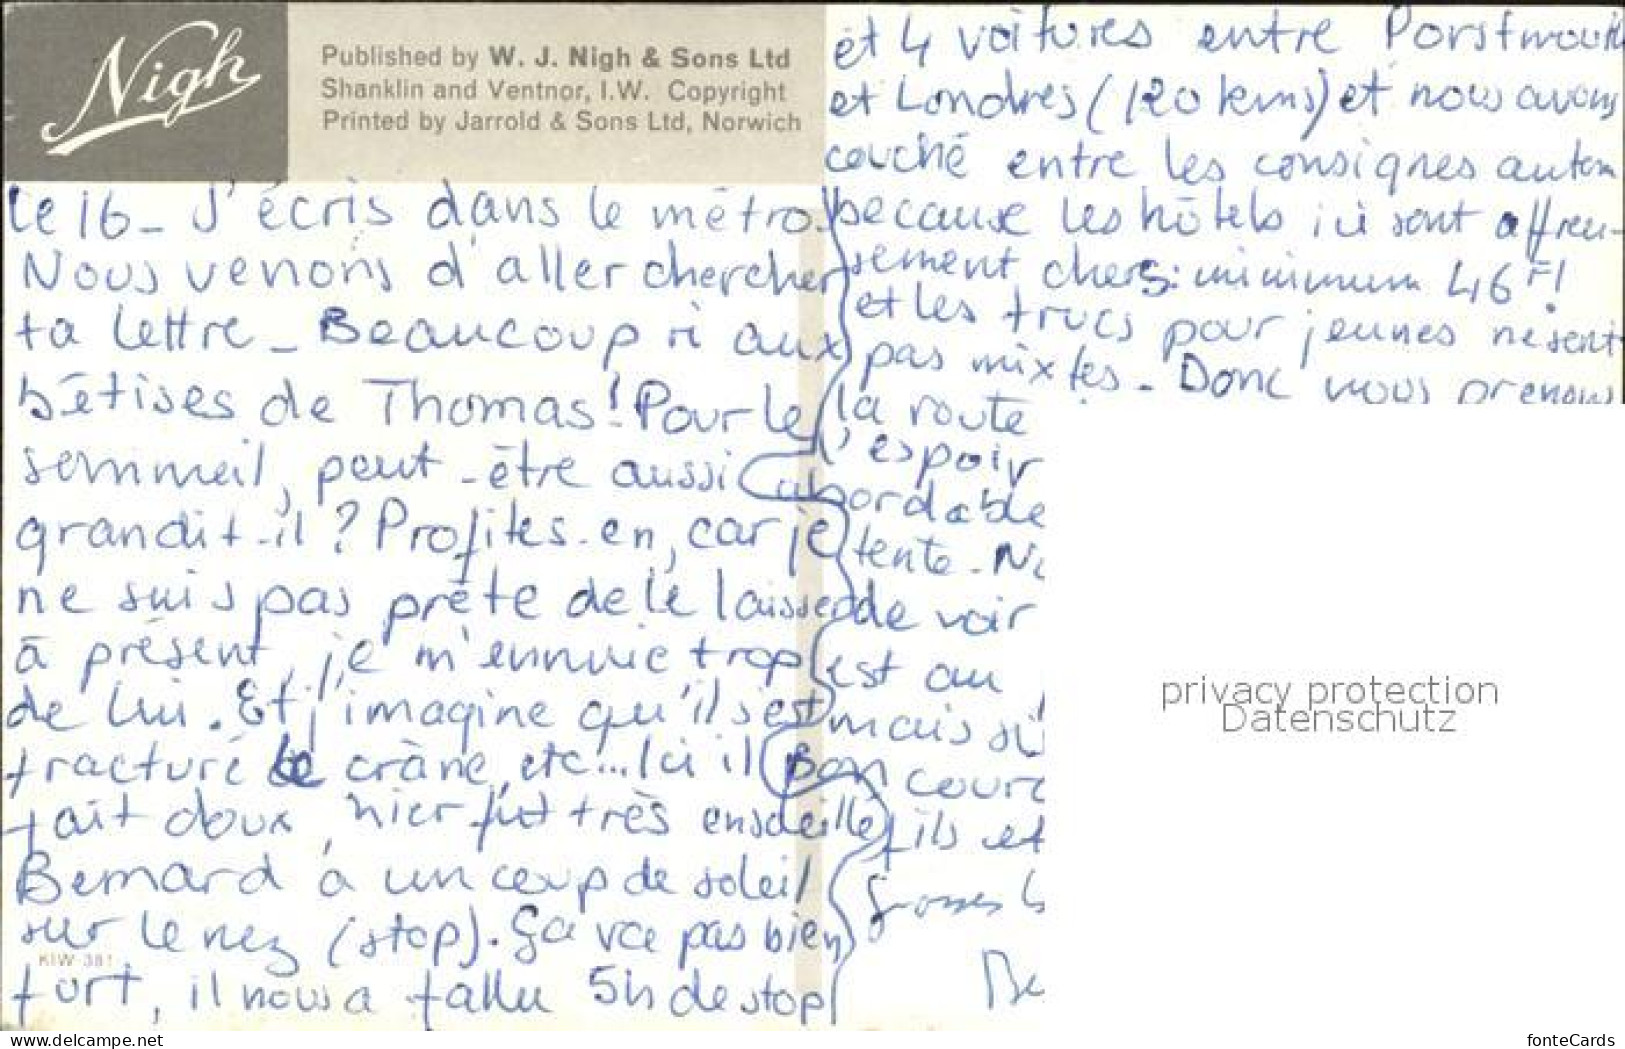 Nigh
Published by W. J. Nigh & Sons Ltd
Shanklin and Ventnor, I.W. Copyright
Printed by Jarrold & Sons Ltd, Norwich
Le 16 - J'écris dans le métro.
Nous venons d'aller chercher
ta lettre - Beaucoup ri aux
bêtises de Thomas! Pour le
sommeil, peut-être aussi
grandit-il? Profites-en, car je
ne suis pas prête de le laisser
à présent, je m'ennuie trop
de lui. Et j'imagine qu'il s'est
fracturé le crâne, etc... Ici il
fait doux, hier fut très ensoleillé
Bernard a un coup de soleil
sur le nez (stop). Ça va pas bien
fort, il nous a fallu 5h de stop
KIW 381
et 4 voitures entre Porstmouth
et Londres (120 kms) et nous avons
couché entre les consignes autom
because les hôtels ici sont affreu-
sement chers: minimum 46F!
et les trucs pour jeunes ne sont
pas mixtes - Donc nous prenons
la route
l'espoir
abordable
tente - N
de voir
est au
mais si
Bon cour
fils et
Grosses b
Be
privacy protection
Datenschutz
www.delcampe.net
fonteCards